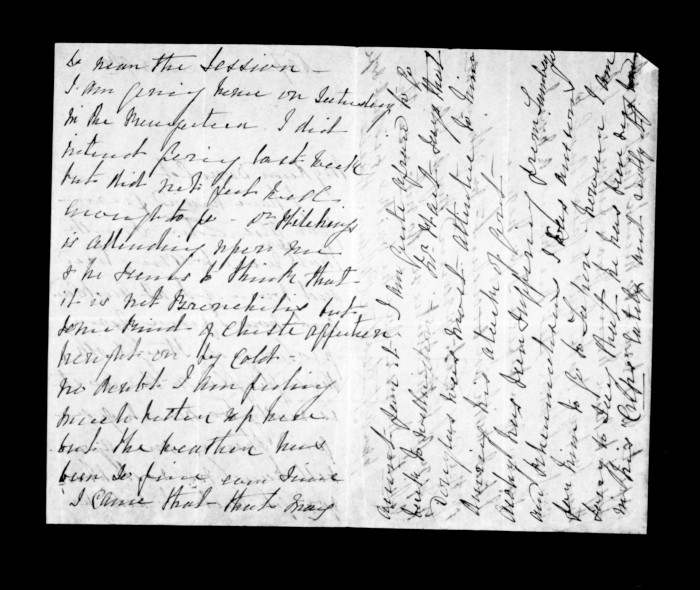 so near the Session -
I am going home on Saturday
in the Rangatira. I did
intend going last week
but did not feel well
enough to go - Dr Hitchings
is attending upon me
& he seems to think that
it is not Bronchitis but
some kind of Chest affection
brought on by cold -
no doubt I am feeling
much better up here
but the weather has
been so fine ever since
I came that that may
account for it. I am quite afraid to go
back to Wellington. Mr Hart says that
Douglas was most attentive to him
during his attack of gout.
Archy has been suffering from Lumbago
and Rheumatism. It was amusing for
him to go to Tahoraiti however. I am
sorry to say that he has been
in his Cups lately and sadly off